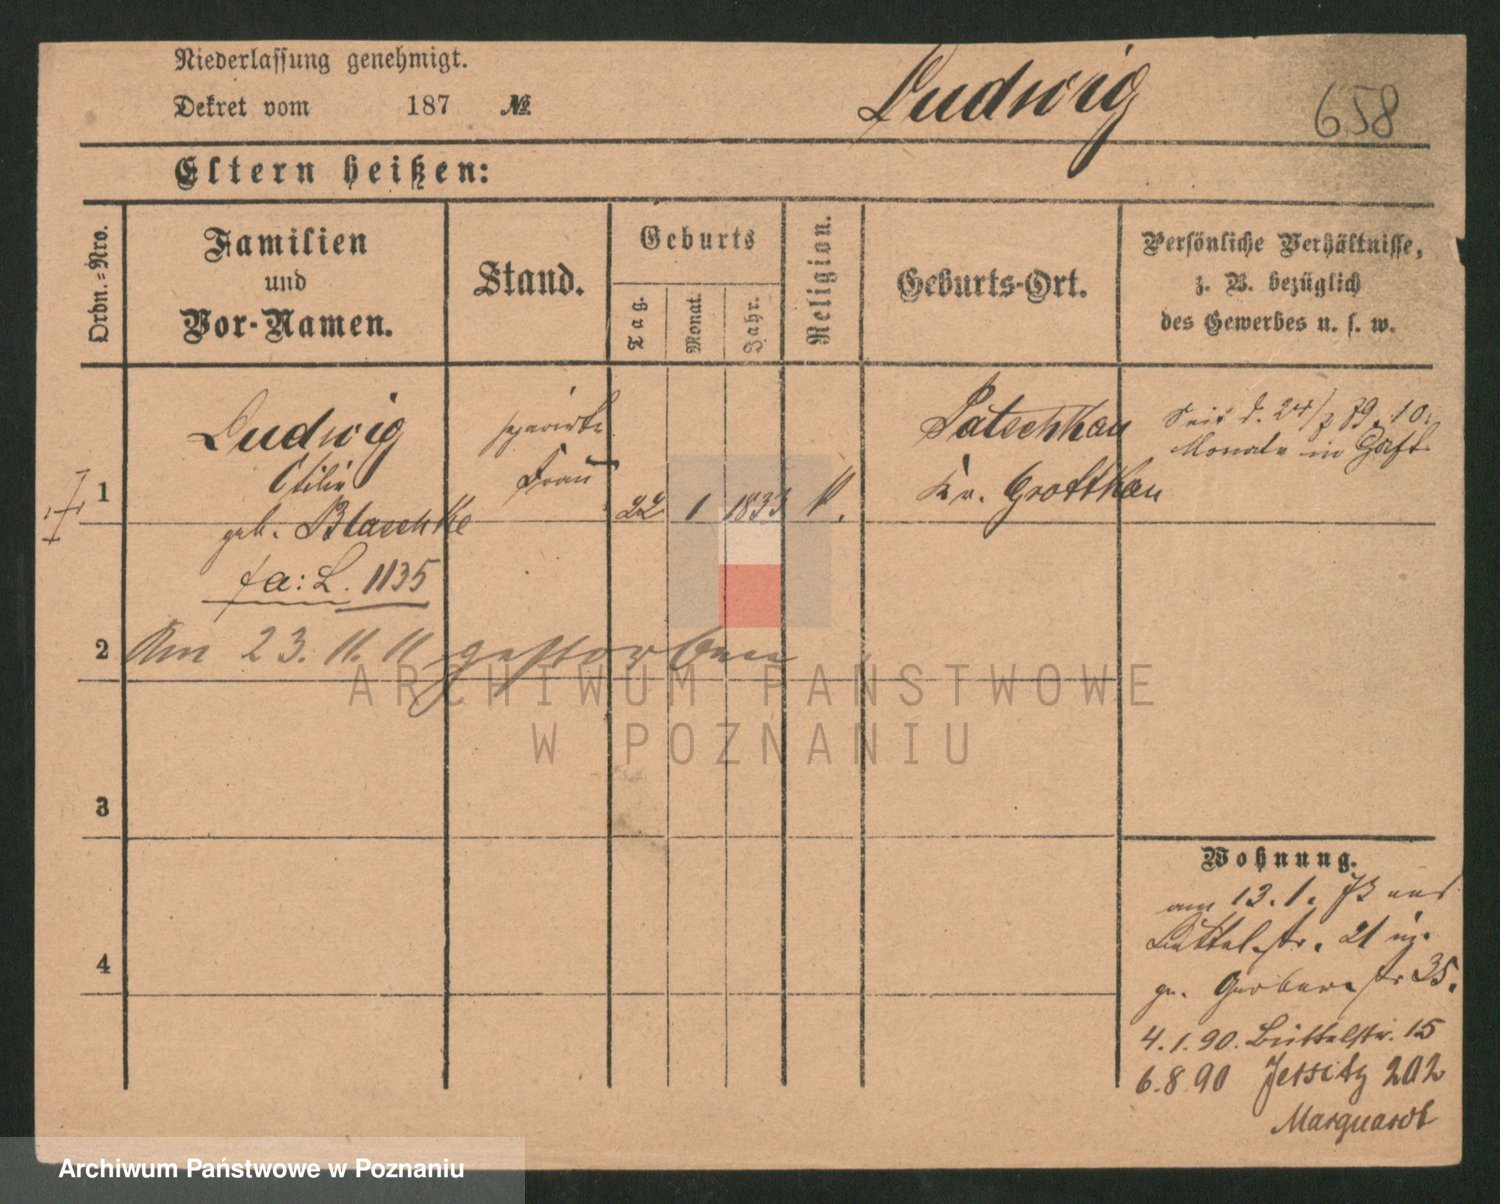 Niederlassung genehmigt.
Dekret vom 187 № Ludwig 658
Eltern heißen:
Ordn.-Nro.
Familien
und
Vor-Namen.
Stand.
Geburts
Tag.
Monat.
Jahr.
Religion.
Geburts-Ort.
Persönliche Verhältnisse,
z. B. bezüglich
des Gewerbes u. s. w.
1
Ludwig
Otilie
geb. Blaschke
fa: L. 1135
separirte
Frau
22 1 1833 K.
Patschkau
Kr. Grottkau
Seit d. 24/7 79. 10
Monate in Haft
2
Am 23. 11. 11 gestorben
3
4
Wohnung.
am 13. 1. aus
Büttelstr. 21
Gerberstr 35.
4.1.90. Büttelstr. 15
6.8.90 Jersitz 202
Marquardt
ARCHIWUM PAŃSTWOWE
W POZNANIU
Archiwum Państwowe w Poznaniu